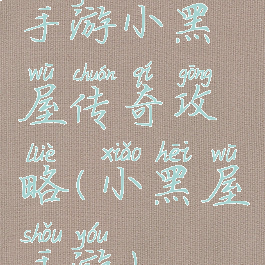 手游小黑
wū chuán qí gōng
屋传奇攻
lüè xiǎo hēi wū
略(小黑屋
shǒu yóu
手游)